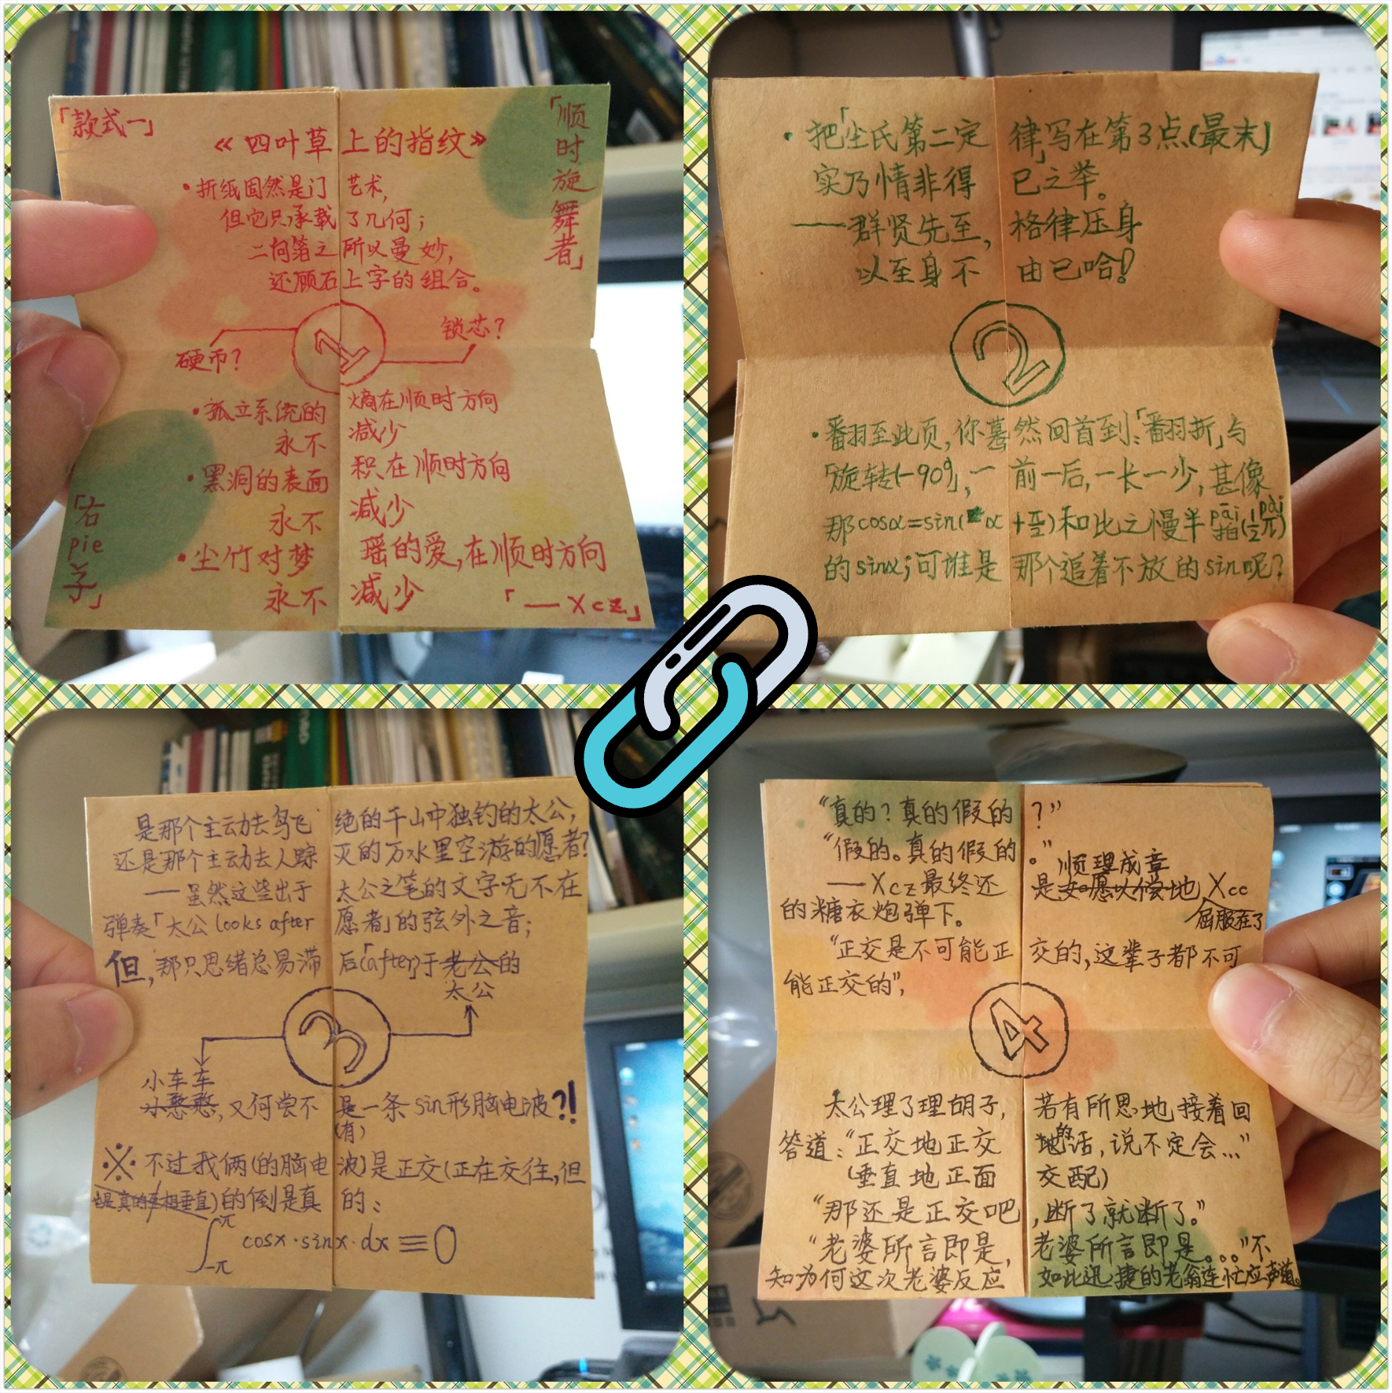 「款式一」
《四叶草上的指纹》
「顺时旋舞者」
•折纸固然是门艺术,
但它只承载了几何;
二向箔之所以曼妙,
还顾石上字的组合。
1
硬币?
锁芯?
•孤立系统的熵在顺时方向
永不减少
•黑洞的表面积在顺时方向
永不减少
•尘竹对梦瑶的爱,在顺时方向
永不减少
「右pie子」
「—Xcz」
•把「尘氏第二定律」写在第3点(最末)
实乃情非得已之举。
——群贤先至,格律压身
以至身不由已哈!
2
•翻至此页,你蓦然回首到:「翻折」与
「旋转(-90°)」,一前一后,一长一少,甚像
那cosα=sin(α+π/2)和比之慢半pāi拍(½π pài)
的sinα;可谁是那个追着不放的sin呢?
是那个主动去鸟飞绝的千山中独钓的太公,
还是那个主动去人踪灭的万水里空游的愿者?
——虽然这些出于太公之笔的文字无不在
弹奏「太公looks after愿者」的弦外之音;
但,那只思绪总易滞后「(after)」于老公的
太公
3
小车车
小憨憨,又何尝不是一条sin形脑电波?!
(有)
※不过我俩(的脑电波)是正交(正在交往,但
是真的互相垂直)的倒是真的:
∫-π^π cosx·sinx·dx≡0
“真的?真的假的?”
“假的。真的假的。”
顺理成章
——Xcz最终还是如愿以偿地,Xcc
屈服在了
的糖衣炮弹下。
“正交是不可能正交的,这辈子都不可
能正交的”,
4
太公理了理胡子,若有所思地接着回
答道:“正交地正交的话,说不定会...”
(垂直地正面交配)
“那还是正交吧,断了就断了。”
“老婆所言即是,老婆所言即是。。。”不
知为何这次老婆反应如此迅捷的老翁连忙应声道。